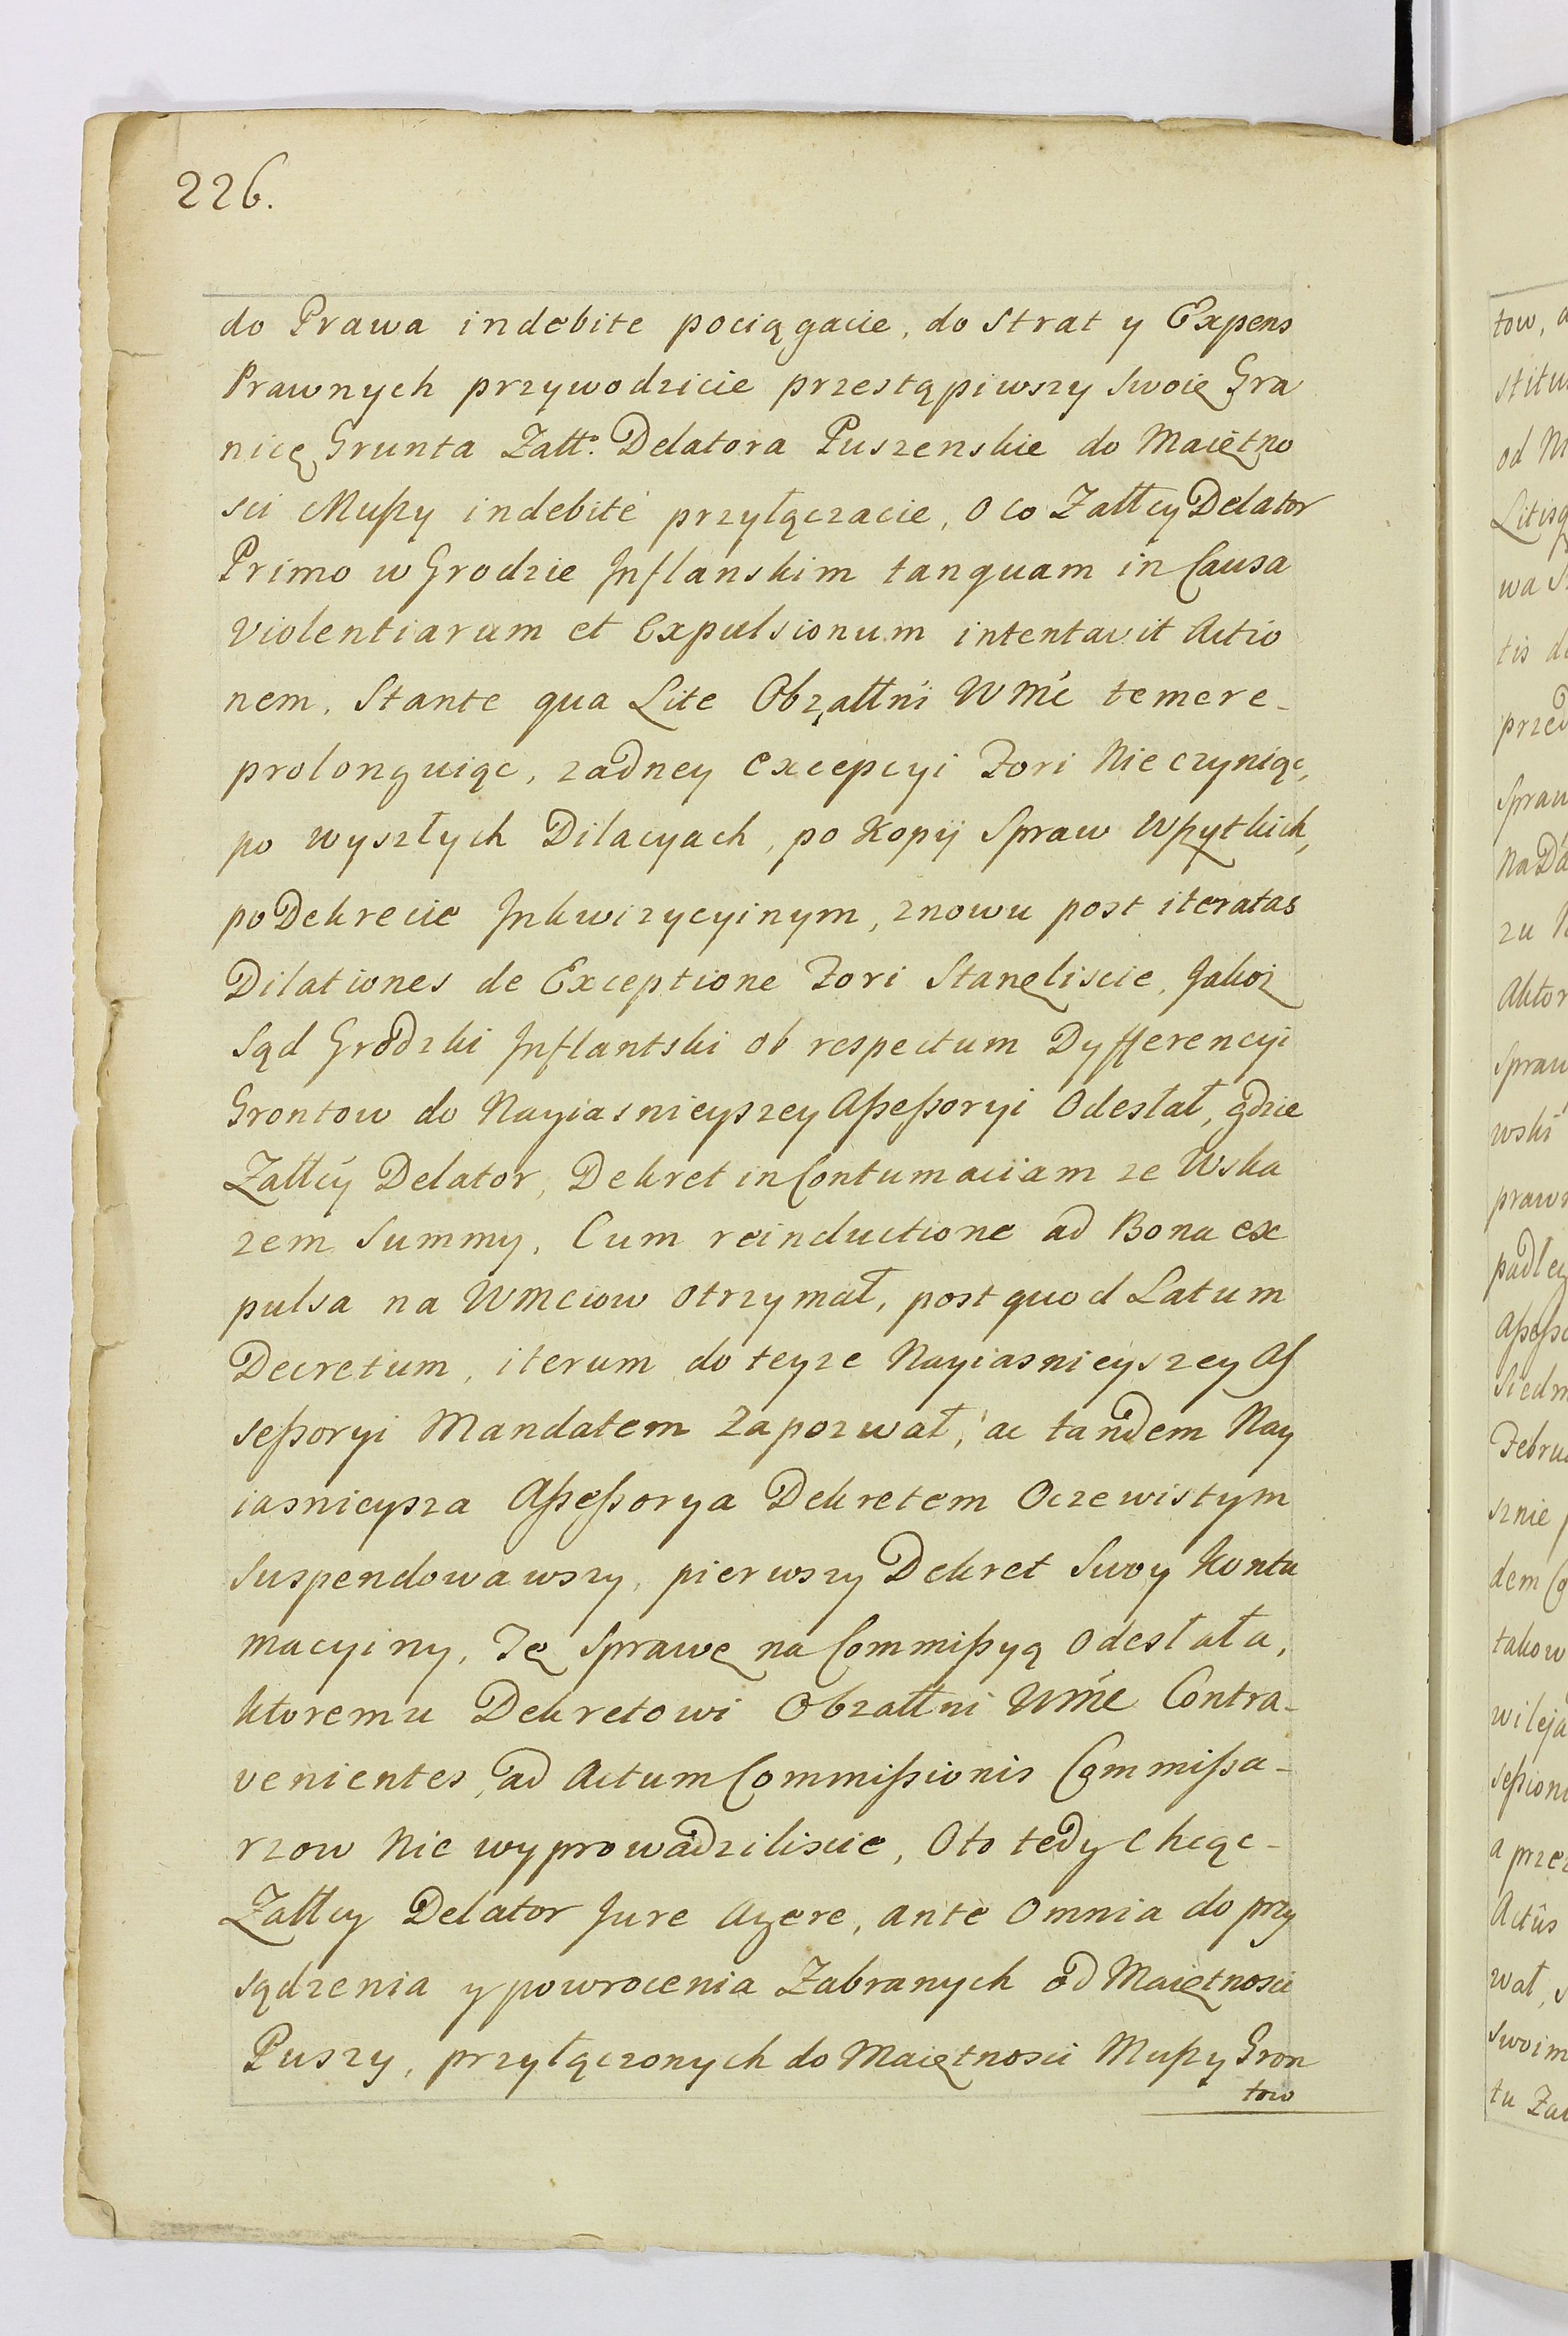 226.
do Prawa indebite pociągacie, do Strat y Expens
Prawnych przywodzicie przestąpiwszy Swoię Gra
nicę Grunta Załłº Delatora Puszenskie do Maiętno
sci Mußy indebité przyłączacie, o co Załłcy Delator
Primo w Grodzie Inflanskim tanquam in Causa
Violentiarum et Expulsionum intentavit Actio
nem, Stante qua Lite Obżałłni Wmć temere-
prolonguiąc, zadney Excepcyi Fori Nie czyniąc,
po wyszłych Dilacyach, po Kopij Spraw Wßytkich,
po Dekrecie Inkwizycyinym, znowu post iteratas
Dilationes de Exceptione Fori Stanęliscie, Jakoż
Sąd Grodzki Inflantski ob respectum Dyfferencyi
Grontow do Nayiasnieyszey Aßeßoryi Odesłał, gdzie
Załłcy Delator, Dekret in Contumaciam ze Wska
zem Summy, Cum reinductione ad Bona ex
pulsa na Wmciow otrzymał, post quod Latum
Decretum, iterum do teyze Nayiasnieyszey As
seßoryi Mandatem Zapozwał, ac tandem Nay
iasnieysza Aßeßorya Dekretem Oczewistym
Suspendowawszy, pierwszy Dekret Swoy Kontu
macyiny, Tę Sprawę na Commißyą Odesłała,
ktoremu Dekretowi Obzałłni Wmć Contra-
venientes, ad Actum Commißionis Commißa-
rzow Nie wyprowadziliscie, Oto tedy Chcąc-
Załłcy Delator Jure Agere, ante Omnia do przy
sądzenia y powrocenia Zabranych od Maiętnosci
Puszy, przyłączonych do Maiętnosci Mußy Gron
tow
tow,
od
wa
tis
Spraw
Na
zu
Aktor
Spraw
wski
padley
Siedm
sznie
dem
takow
a prze
Actûs
wał,
swoim
tu